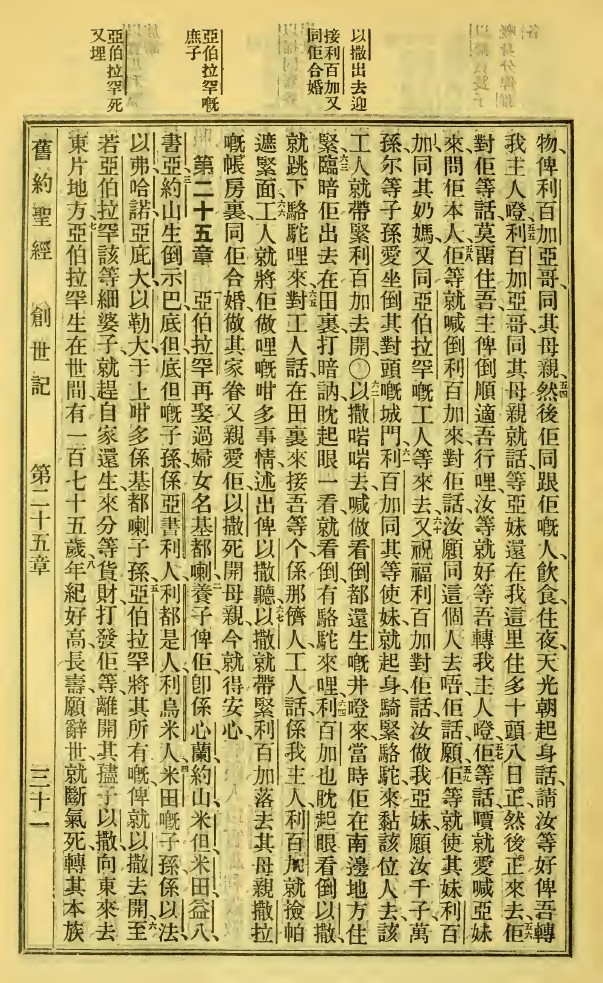 以撒出去迎
接利百加又
同佢合婚
亞伯拉罕嘅
庶子
亞伯拉罕死
又埋
物俾利百加亞哥同其母親然後佢同跟佢嘅人飲食住夜天光朝起身話請汝等好俾吾轉
我主人嶝利百加亞哥同其母親就話等亞妹還在我這里住多十頭八日正然後正來去佢
對佢等話莫畱住吾主俾倒順適吾行哩汝等就好等吾轉我主人嶝佢等話嚽就愛喊亞妹
來問佢本人佢等就喊倒利百加來對佢話汝願同這個人去唔佢話願佢等就使其妹利百
加同其奶媽又同亞伯拉罕嘅工人等來去又祝福利百加對佢話汝做我亞妹願汝千子萬
孫尔等子孫愛坐倒其對頭嘅城門利百加同其等使妹就起身騎緊駱駝來黏該位人去該
工人就帶緊利百加去開〇以撒啱啱去喊做看倒都還生嘅井嶝來當時佢在南邊地方住
緊臨暗佢出去在田裏打暗訥眈起眼一看就看倒有駱駝來哩利百加也眈起眼看倒以撒
就跳下駱駝哩來對工人話在田裏來接吾等个係那儕人工人話係我主人利百加就撿帕
遮緊面工人就將佢做哩嘅咁多事情述出俾以撒聽以撒就帶緊利百加落去其母親撒拉
嘅帳房裏同佢合婚做其家眷又親愛佢以撒死開母親今就得安心
第二十五章 亞伯拉罕再娶過婦女名基都喇養子俾佢卽係心蘭約山米但米田益八
書亞約山生倒示巴底但底但嘅子孫係亞書利人利都是人利烏米人米田嘅子孫係以法
以弗哈諾亞庇大以勒大于上咁多係基都喇子孫亞伯拉罕將其所有嘅俾就以撒去開至
若亞伯拉罕該等細婆子就趕自家還生來分等貨財打發佢等離開其𧝞子以撒向東來去
東片地方亞伯拉罕生在世間有一百七十五歲年紀好高長壽願辭世就斷氣死轉其本族
舊約聖經 創世記 第二十五章 三十一